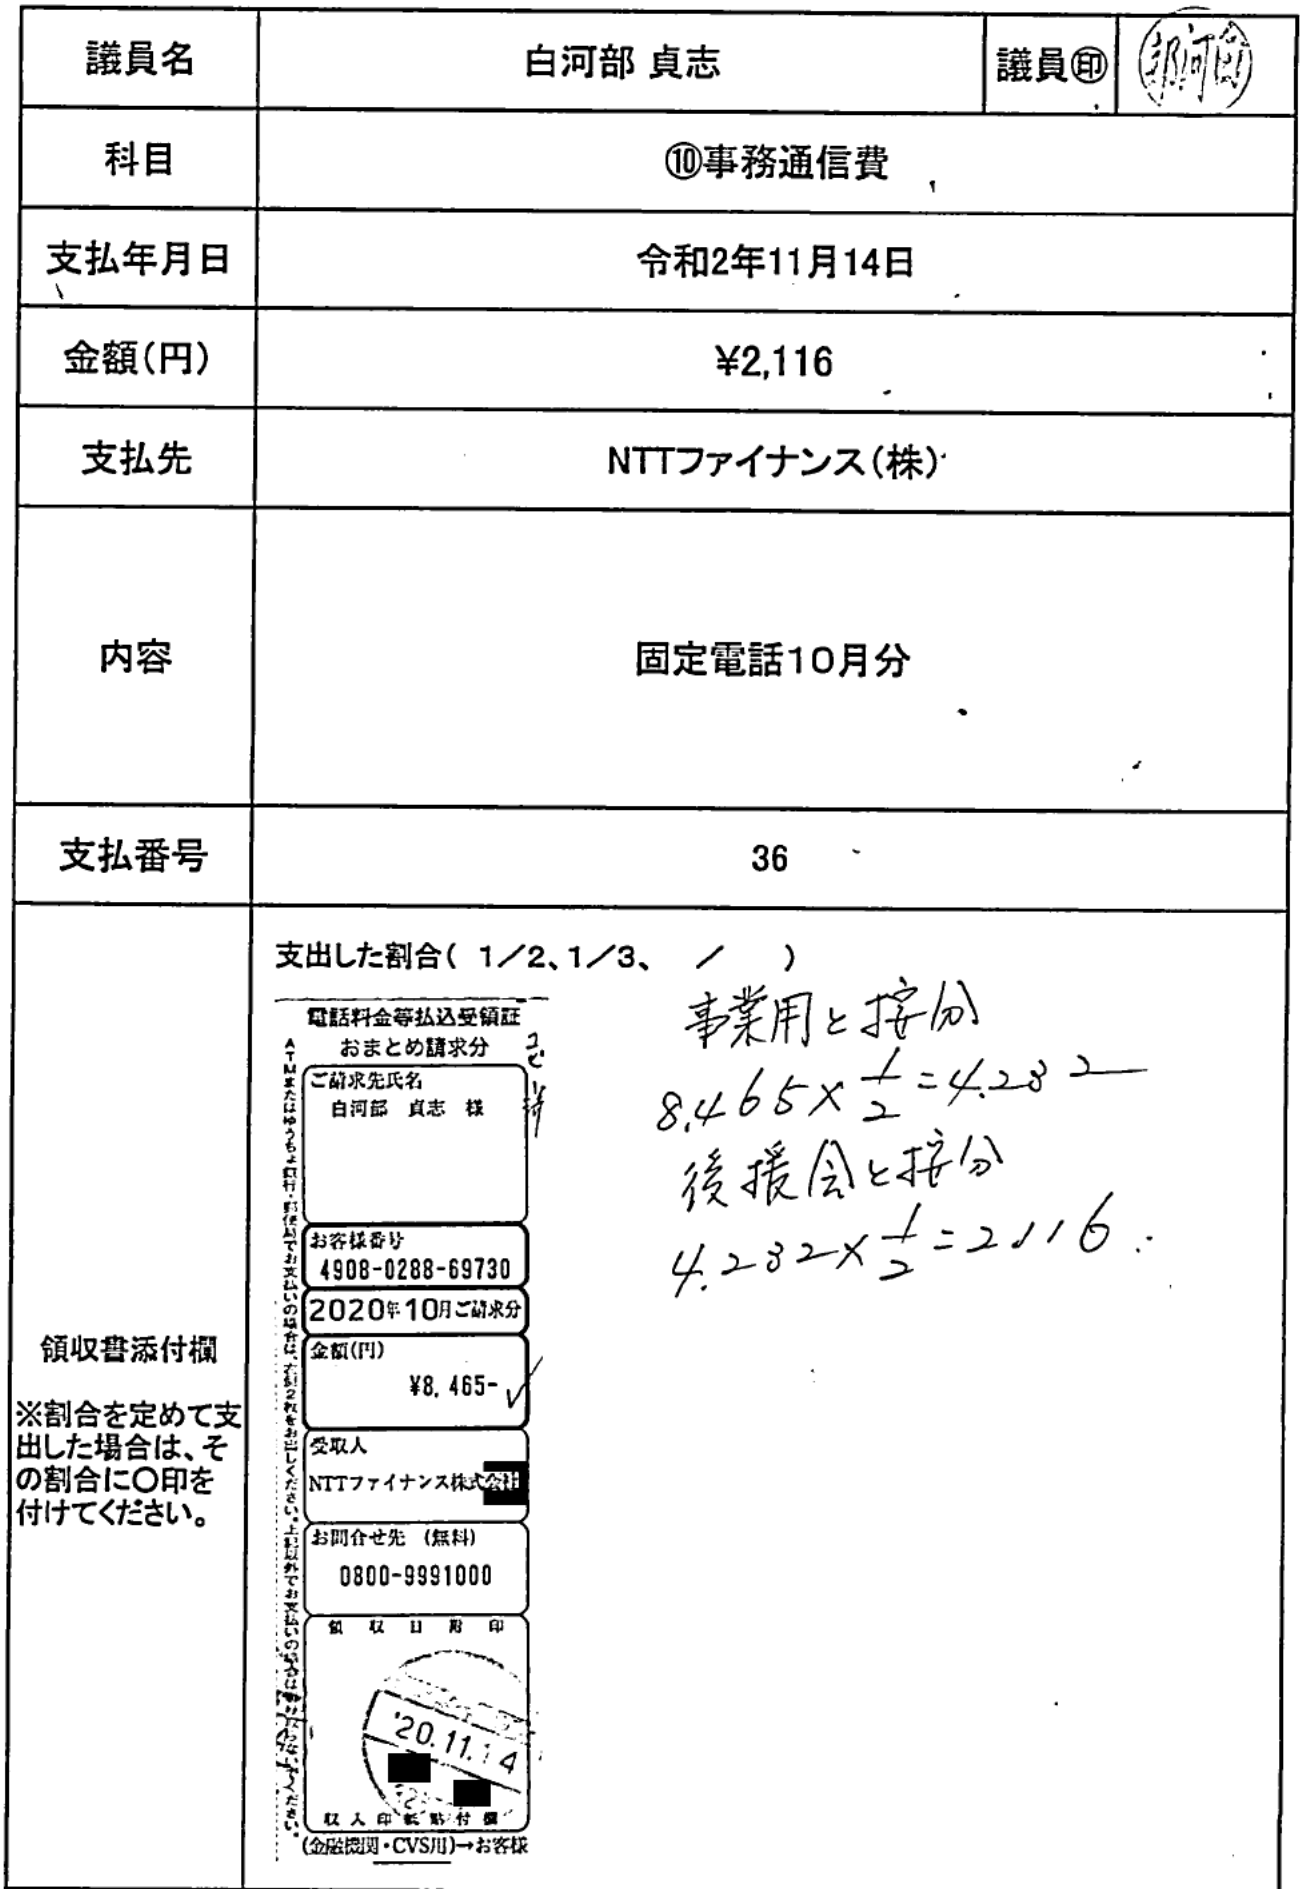 議員名
白河部 貞志
議員㊞
科目
⑩事務通信費
支払年月日
令和2年11月14日
金額(円)
¥2,116
支払先
NTTファイナンス(株)
内容
固定電話10月分
支払番号
36
領収書添付欄
※割合を定めて支
出した場合は、そ
の割合に〇印を
付けてください。
支出した割合( 1/2、1/3、 / )
事業用と按分
8,465×1/2=4,232
後援会と按分
4,232×1/2=2,116
電話料金等払込受領証
おまとめ請求分
ご請求先氏名
白河部 貞志 様
お客様番号
4908-0288-69730
2020年10月ご請求分
金額(円)
¥8,465-
受取人
NTTファイナンス株式会社
お問合せ先 (無料)
0800-9991000
領収日附印
'20.11.14
収入印紙貼付欄
(金融機関・CVS用)→お客様
ATMまたはゆうちょ銀行・郵便局でお支払いの場合は、左側2枚をお出しください。上記以外でお支払いの場合は切り取らないでください。